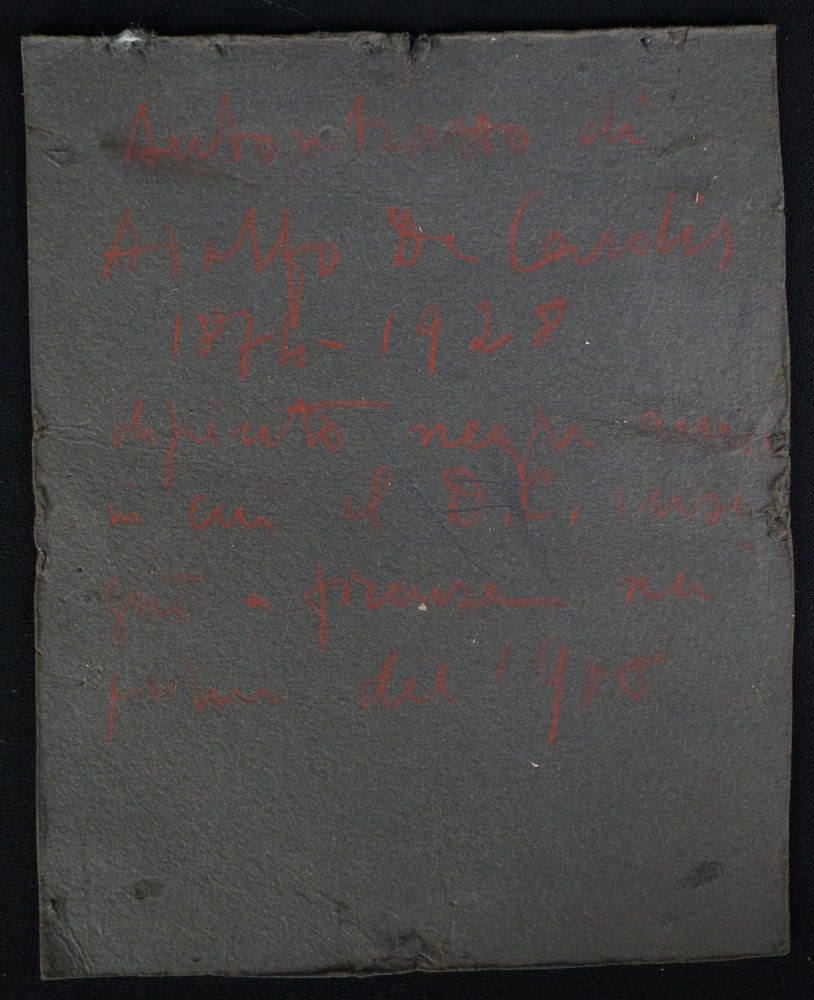 Autoritratto di
Adolfo De Carolis
1874-1928
dipinto negli anni
in cui il D.C.
a Firenze nei
primi del 1900